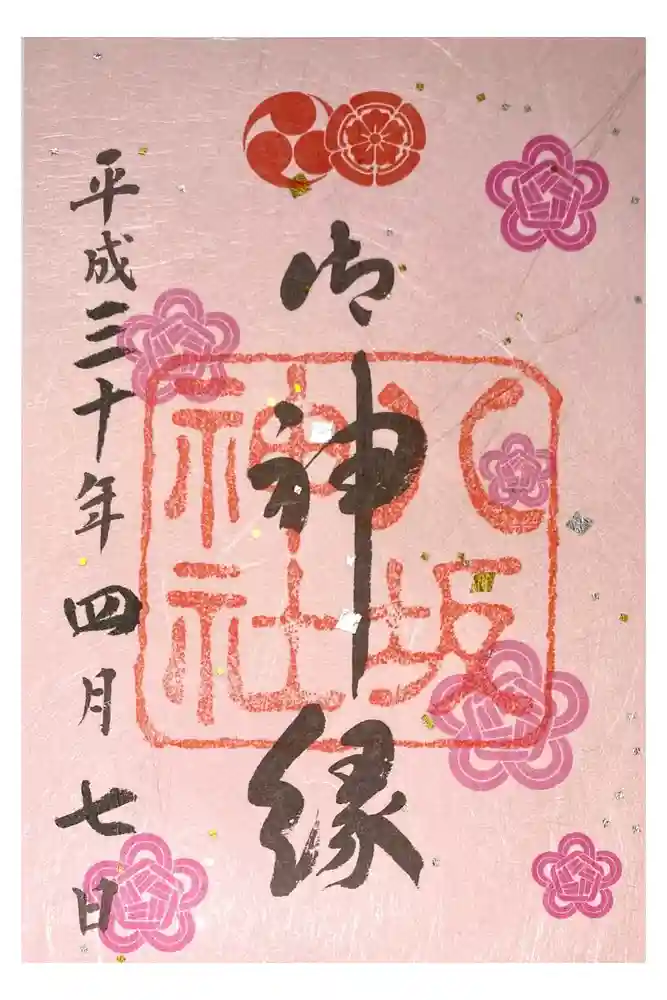 御神縁
八坂
神社
平成三十年四月七日